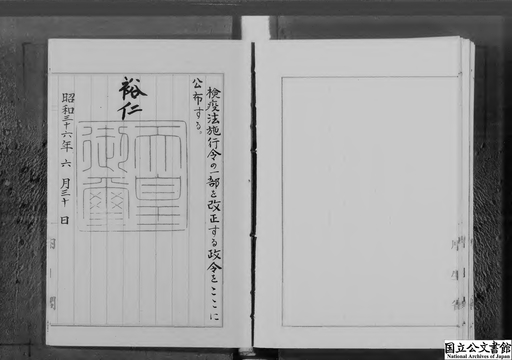 検疫法施行令の一部を改正する政令をここに
公布する。
裕仁
天皇
御璽
昭和三十六年六月三十日
国立公文書館
National Archives of Japan